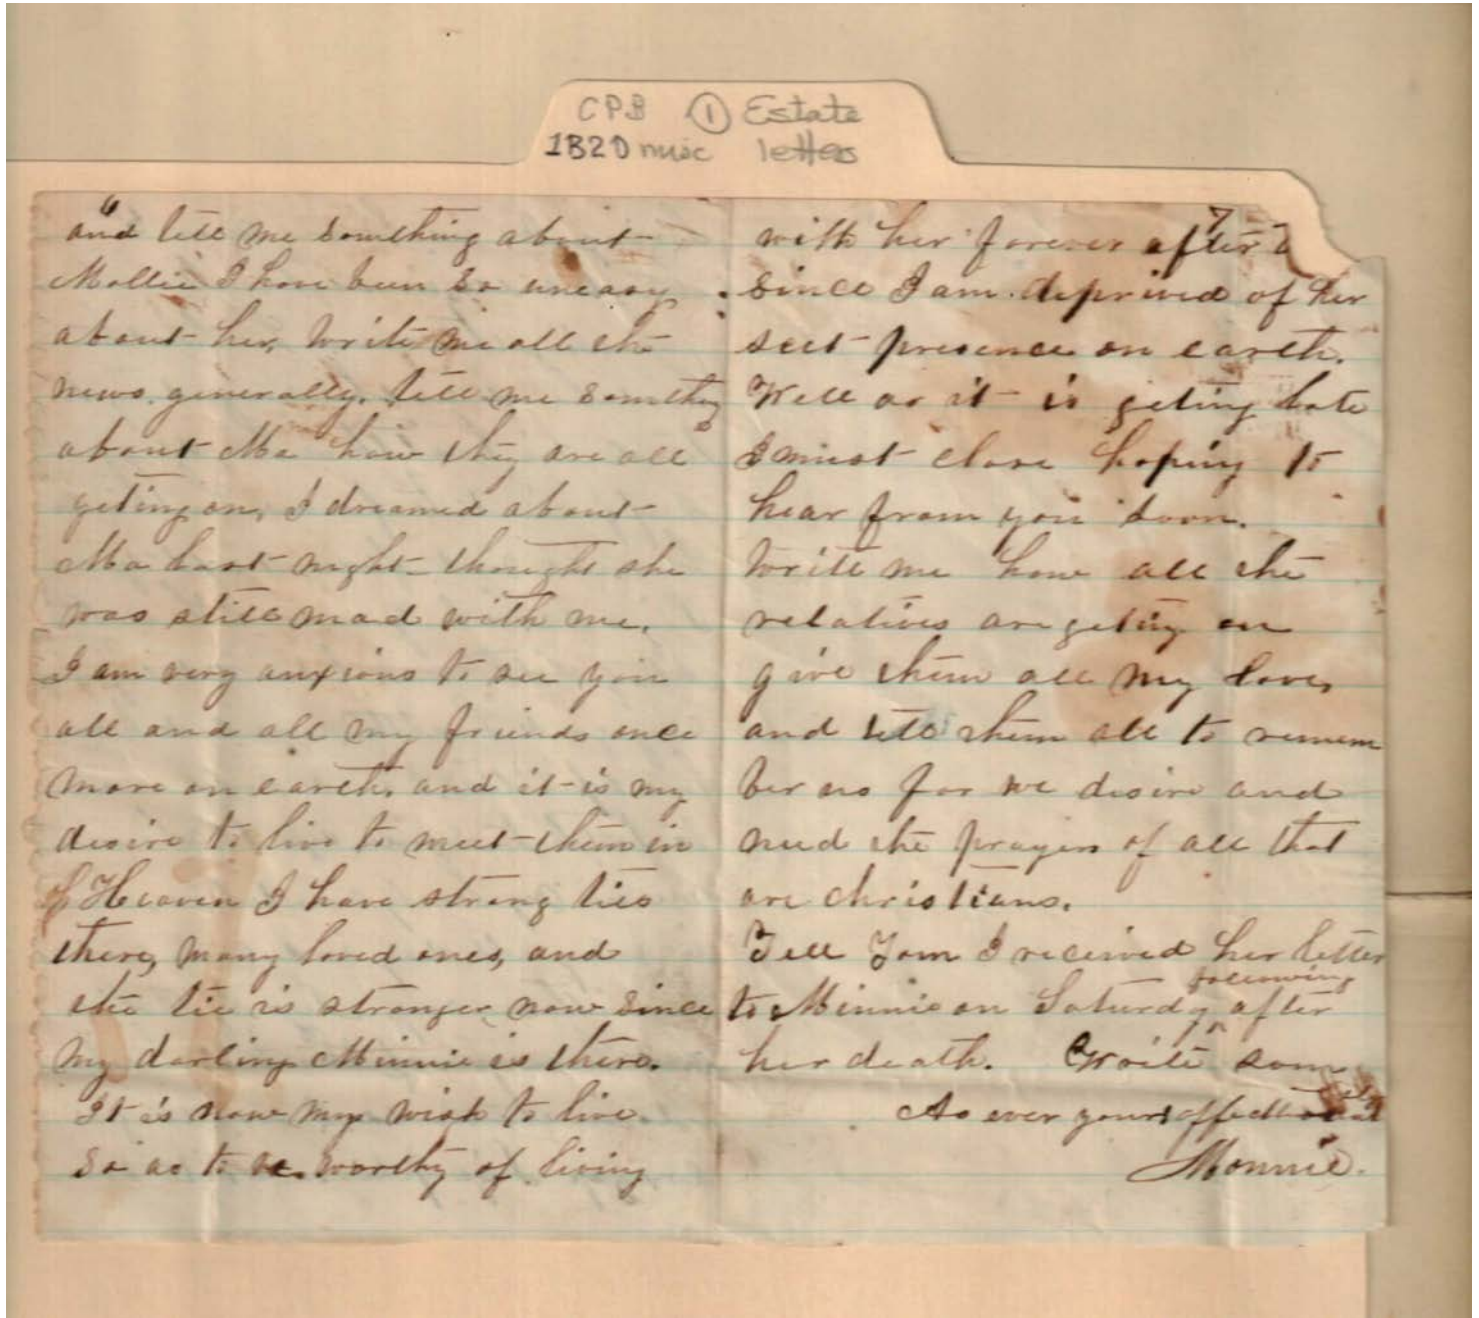 CPB ① Estate
1820 misc letters
6
and tell me something about
Mollie I have been so uneasy
about her, write me all the
news generally. tell me something
about Ma how they are all
geting on, I dreamed about
Ma last night thought she
was still mad with me.
I am very anxious to see you
all and all my friends once
more on earth, and it is my
desire to live to meet them in
Heaven I have strong ties
there, many loved ones, and
the tie is stronger now since
my darling Minnie is there.
It is now my wish to live
so as to be worthy of living
7
with her forever after
since I am deprived of her
seet presence on earth.
Well as it is geting late
I must close hoping to
hear from you soon.
Write me how all the
relatives are geting on
give them all my love,
and tell them all to remem
ber us for we desire and
need the prayers of all that
are christians.
Tell Tom I received her letter
to Minnie on Saturdy following after
her death. Write soon
As ever yours
Monnie.